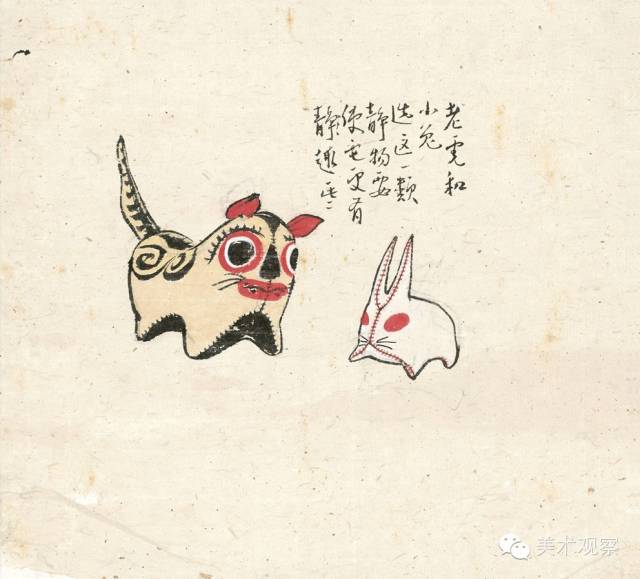 老虎和
小兔
选这一類
静物要
使它更有
静趣
美术观察